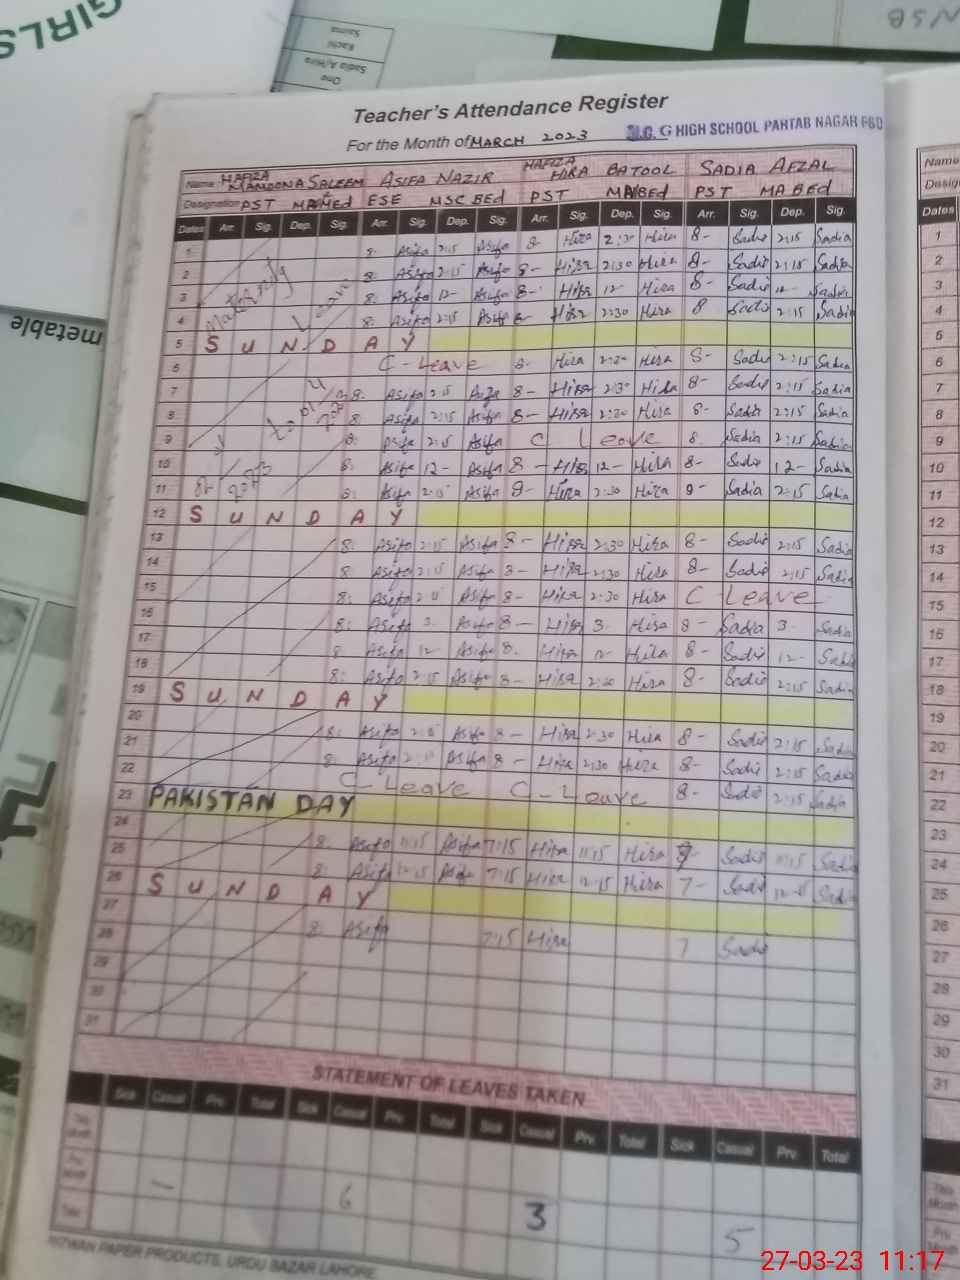 GIRLS
NSB
Saima
Rachi
Sadia A/Hira
One
metable
Teacher's Attendance Register
For the Month of MARCH 2023 M.C. G HIGH SCHOOL PARTAB NAGAR FSD
Name HAFIZA MAMOONA SALEEM ASIFA NAZIR HAFIZA HIRA BATOOL SADIA AFZAL
Designation PST MA MEd ESE MSC BEd PST MA BEd PST MA BEd
Dates Arr. Sig. Dep. Sig. Arr. Sig. Dep. Sig. Arr. Sig. Dep. Sig. Arr. Sig. Dep. Sig.
1 8: Asifa 2:15 Asifa 8- Hira 2:30 Hira 8- Sadia 2:15 Sadia
2 8: Asifa 2:15 Asifa 8- Hira 2:30 Hira 8- Sadia 2:15 Sadia
3 8: Asifa 12- Asifa 8- Hira 12- Hira 8- Sadia 12- Sadia
4 8: Asifa 2:15 Asifa 8- Hira 2:30 Hira 8 Sadia 2:15 Sadia
Maternity Leave
5 SUNDAY
6 C-Leave 8- Hira 2:30 Hira 8- Sadia 2:15 Sadia
7 8: Asifa 2:15 Asifa 8- Hira 2:30 Hira 8- Sadia 2:15 Sadia
8 8: Asifa 2:15 Asifa 8- Hira 2:30 Hira 8- Sadia 2:15 Sadia
9 8: Asifa 2:15 Asifa C Leave 8 Sadia 2:15 Sadia
10 8: Asifa 12- Asifa 8- Hira 12- Hira 8- Sadia 12- Sadia
11 8: Asifa 2:15 Asifa 8- Hira 2:30 Hira 8- Sadia 2:15 Sadia
12 SUNDAY
13 8: Asifa 2:15 Asifa 8- Hira 2:30 Hira 8- Sadia 2:15 Sadia
14 8: Asifa 2:15 Asifa 8- Hira 2:30 Hira 8- Sadia 2:15 Sadia
15 8: Asifa 2:15 Asifa 8- Hira 2:30 Hira C Leave
16 8: Asifa 3 Asifa 8- Hira 3 Hira 8- Sadia 3- Sadia
17 8: Asifa 12 Asifa 8 Hira 12- Hira 8- Sadia 12- Sadia
18 8: Asifa 2:15 Asifa 8- Hira 2:30 Hira 8- Sadia 2:15 Sadia
19 SUNDAY
20 8: Asifa 2:15 Asifa 8- Hira 2:30 Hira 8- Sadia 2:15 Sadia
21 8: Asifa 2:15 Asifa 8- Hira 2:30 Hira 8- Sadia 2:15 Sadia
22 C-Leave C-Leave 8- Sadia 2:15 Sadia
23 PAKISTAN DAY
24 8: Asifa 11:15 Asifa 7:15 Hira 11:15 Hira Sadia 11:15 Sadia
25 8: Asifa 12:15 Asifa 7:15 Hira 12:15 Hira 7- Sadia 12:15 Sadia
26 SUNDAY
27 8 Asifa 7:15 Hira 7 Sadia
28
29
30
31
STATEMENT OF LEAVES TAKEN
Sick Casual Prv. Total Sick Casual Prv. Total Sick Casual Prv. Total Sick Casual Prv. Total
This Month
Prv. Month
Total - 6 3 5
RIZWAN PAPER PRODUCTS, URDU BAZAR LAHORE
Name
Desig
Dates
1
2
3
4
5
6
7
8
9
10
11
12
13
14
15
16
17
18
19
20
21
22
23
24
25
26
27
28
29
30
31
This Month
Prv Month
27-03-23 11:17